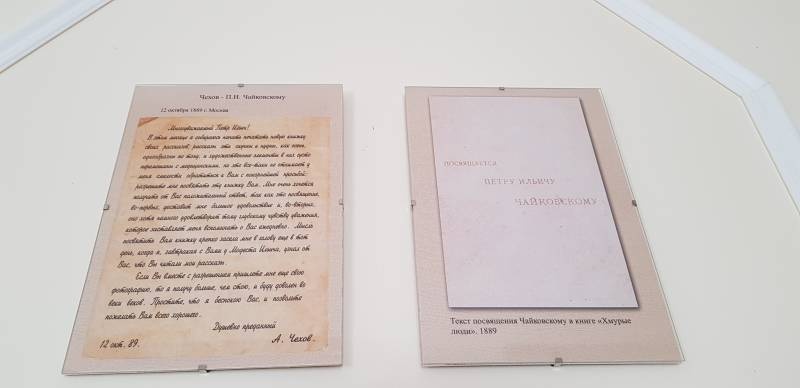 Чехов - П.И. Чайковскому
12 октября 1889 г. Москва
Многоуважаемый Петр Ильич!
В этом месяце я собираюсь начать печатать новую книжку
своих рассказов; рассказы эти скучны и нудны, как осень,
однообразны по тону, и художественные элементы в них густо
перемешаны с медицинскими, но это все-таки не отнимает у
меня смелости обратиться к Вам с покорнейшей просьбой:
разрешите мне посвятить эту книжку Вам. Мне очень хочется
получить от Вас положительный ответ, так как это посвящение,
во-первых, доставит мне большое удовольствие и, во-вторых,
оно хотя немного удовлетворит тому глубокому чувству уважения,
которое заставляет меня вспоминать о Вас ежедневно. Мысль
посвятить Вам книжку крепко засела мне в голову еще в тот
день, когда я, завтракая с Вами у Модеста Ильича, узнал от
Вас, что Вы читали мои рассказы.
Если Вы вместе с разрешением пришлете мне еще свою
фотографию, то я получу больше, чем стою, и буду доволен во
веки веков. Простите, что я беспокою Вас, и позвольте
пожелать Вам всего хорошего.
Душевно преданный
А. Чехов.
12 окт. 89.
ПОСВЯЩАЕТСЯ
ПЕТРУ ИЛЬИЧУ
ЧАЙКОВСКОМУ
Текст посвящения Чайковскому в книге «Хмурые
люди». 1889